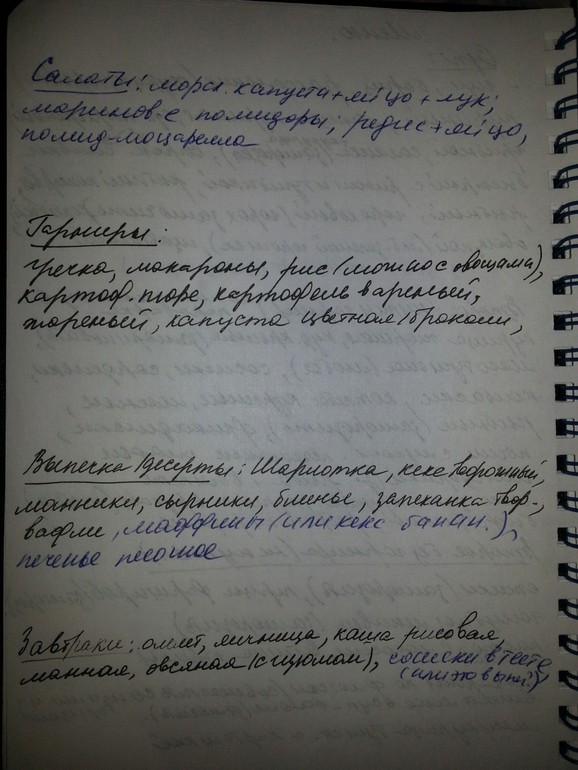 Салаты: морск. капуста+яйцо+лук;
маринов-е помидоры; редис+яйцо,
помид-моцарелла
Гарниры:
гречка, макароны, рис (можно с овощами),
картоф. пюре, картофель вареный,
жареный, капуста цветная/броколи,
Выпечка/десерты: Шарлотка, кекс творожный,
манники, сырники, блины, запеканка твор-,
вафли, маффины (или кекс банан.),
печенье песочное
Завтраки: омлет, яичница, каша рисовая,
манная, овсяная (с изюмом), сосиски в тесте
(или